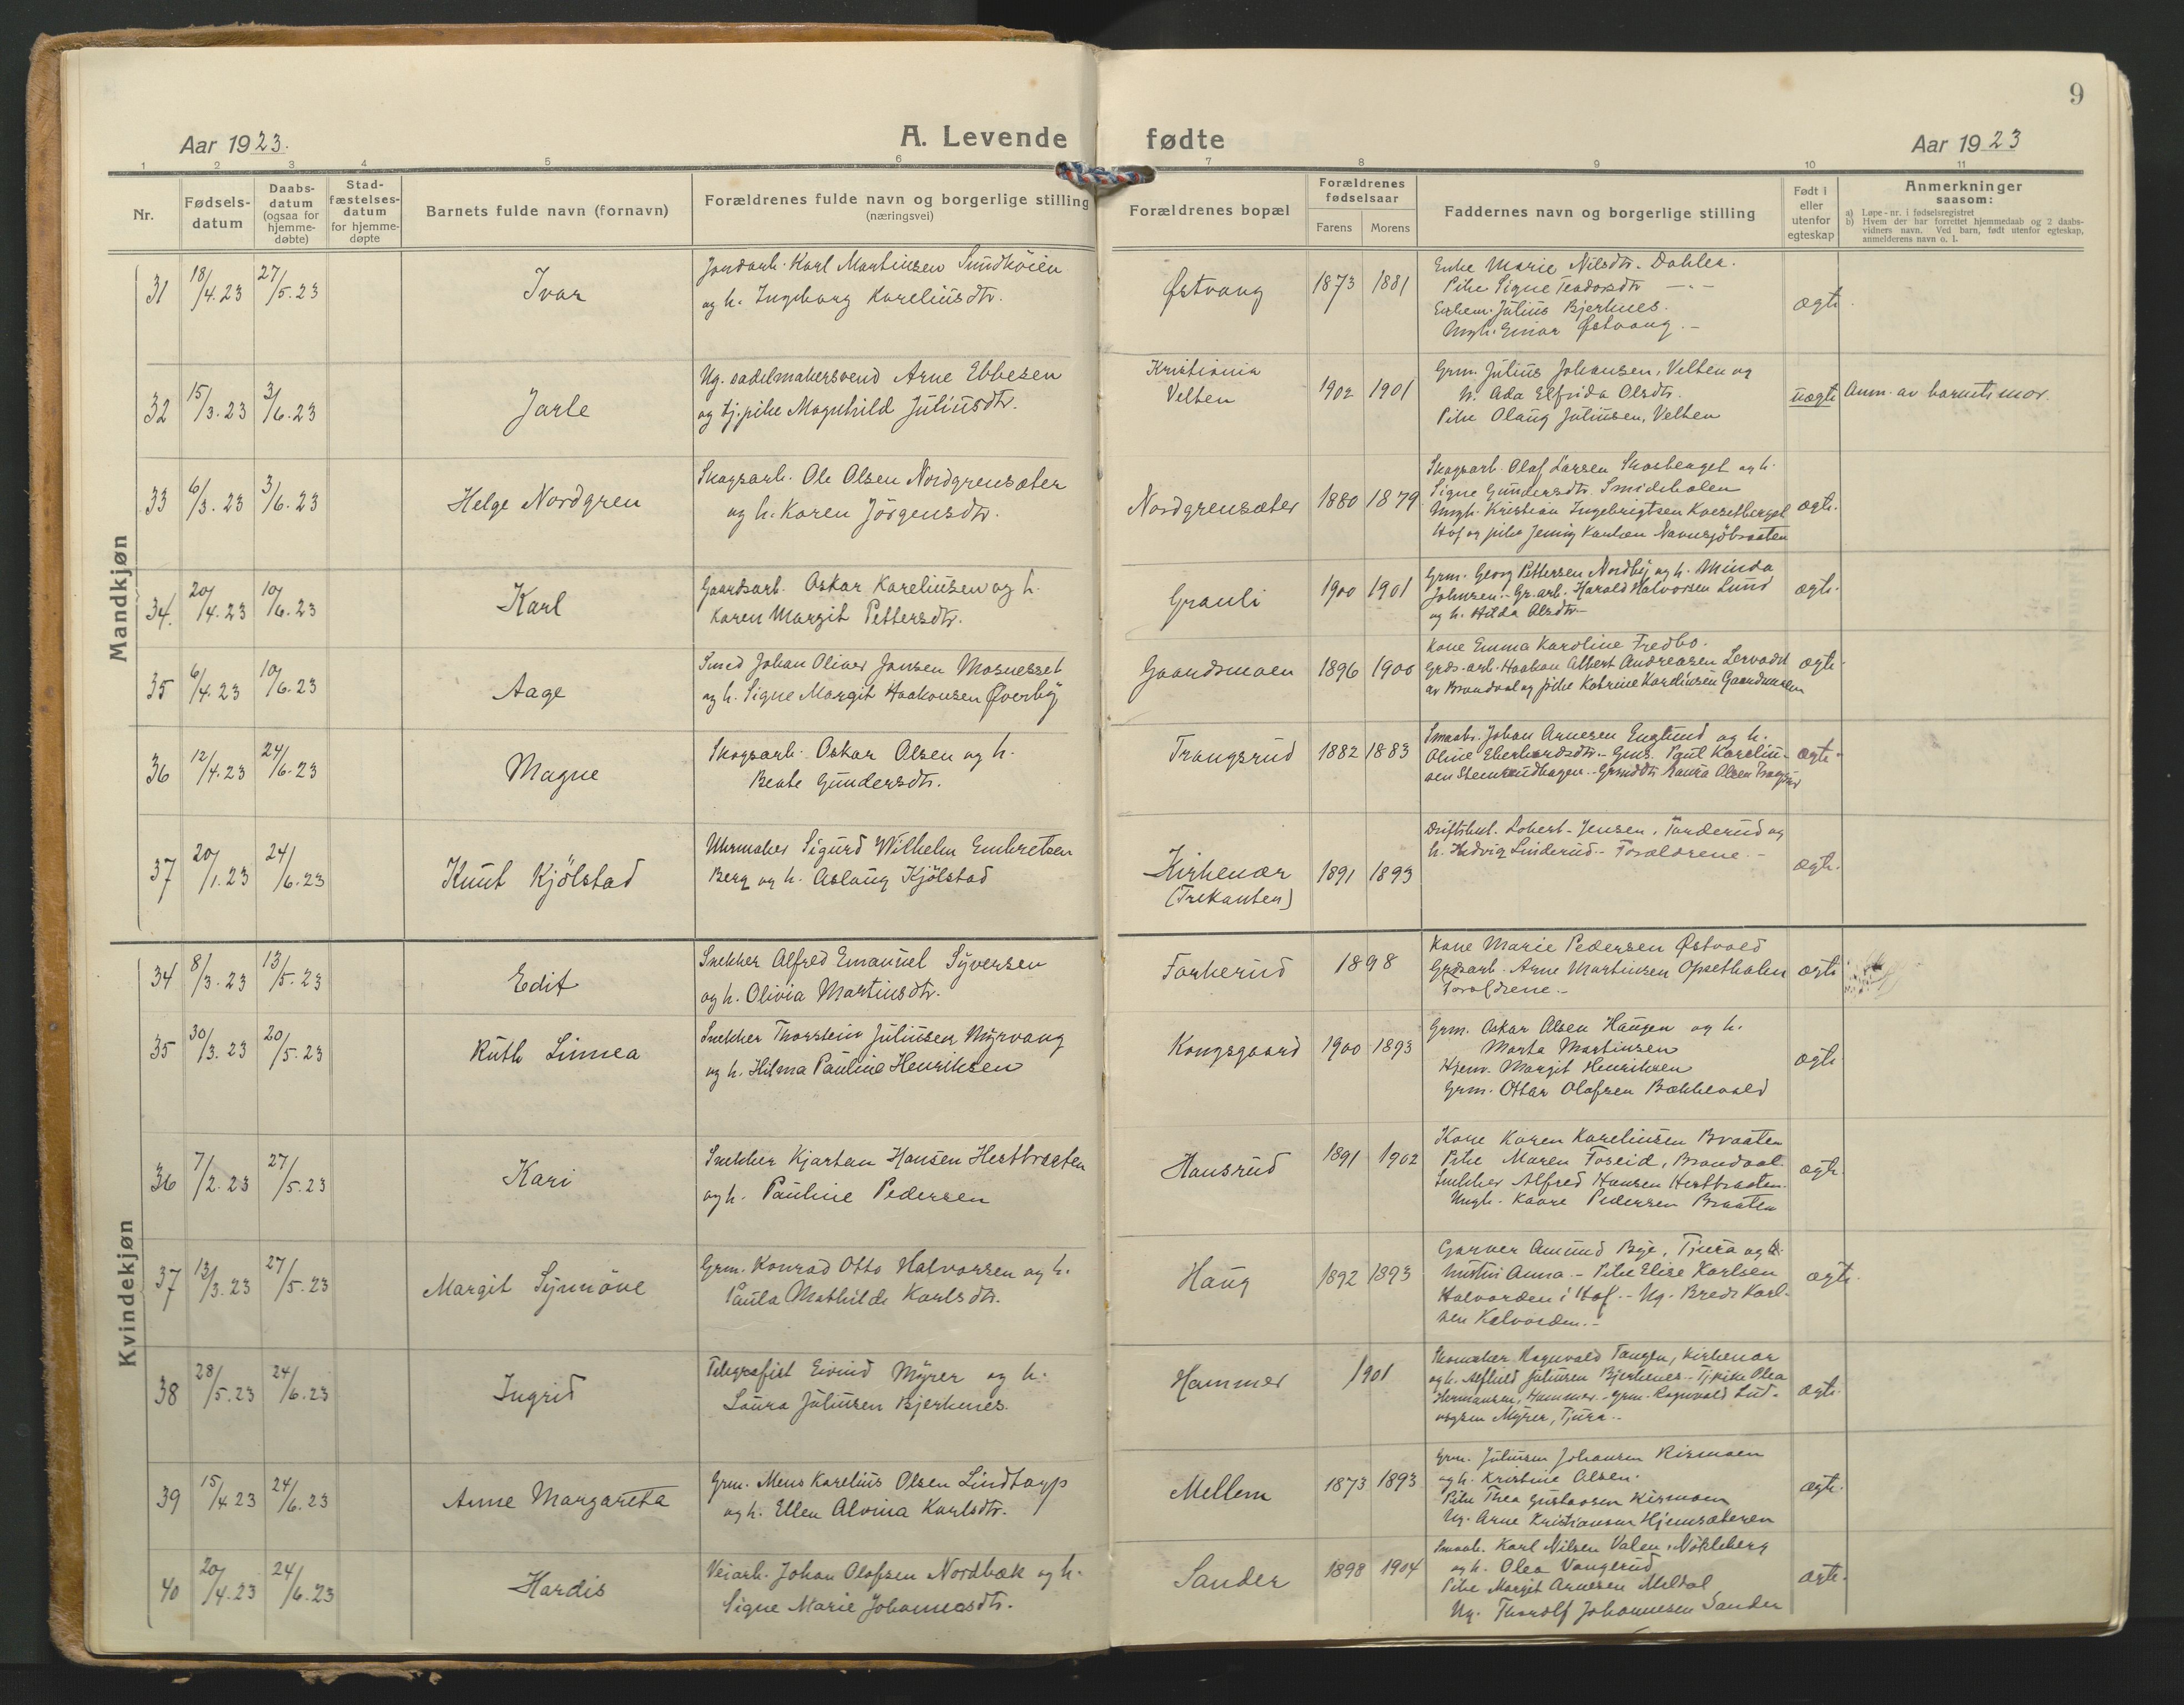 9
Aar 1923.
A. Levende fødte
Aar 1923
1 2 3 4 5 6 7 8 9 10 11
Nr.
Fødsels-
datum
Daabs-
datum
(ogsaa for
hjemme-
døbte)
Stad-
fæstelses-
datum
for hjemme-
døpte
Barnets fulde navn (fornavn)
Forældrenes fulde navn og borgerlige stilling
(næringsvei)
Forældrenes bopæl
Forældrenes
fødselsaar
Farens Morens
Faddernes navn og borgerlige stilling
Født i
eller
utenfor
egteskap
Anmerkninger
saasom:
a) Løpe-nr. i fødselsregistret
b) Hvem der har forrettet hjemmedaab og 2 daabs-
vidners navn. Ved barn, født utenfor egteskap,
anmelderens navn o. l.
Mandkjøn
31 18/4.23 27/5.23 Ivar
Jordarb. Karl Martinsen Sundköien
og h. Ingeborg Kareliusdtr.
Østvang 1873 1881
Enke Marie Nilsdtr. Dahlen.
Pike Signe Teodorsdtr —"—
Enkem. Julius Bjerknes.
Ungk. Einar Østvang.
ægte
32 15/3.23 3/6.23 Jarle
Ug. sadelmakersvend Arne Ebbesen
og tj.pike Magnhild Juliusdtr.
Kristiania
Velten 1902 1901
Grm. Julius Johansen, Velten og
h. Ada Elfrida Olsdtr.
Pike Olaug Juliussen, Velten
uægte Anm. av barnets mor.
33 6/3.23 3/6.23 Helge Nordgren
Skogsarb. Ole Olsen Nordgrensæter
og h. Karen Jörgensdtr.
Nordgrensæter 1880 1879
Skogsarb. Olaf Larsen Skasberget og h.
Signe Gundersdtr. Smideholen
Ungk. Kristian Ingebrigtsen Kvesethberget
Hof og pike Jenny Karlsen Navnsjöbraaten
ægte.
34. 20/4.23 10/6.23 Karl
Gaardsarb. Oskar Kareliusen og h.
Karen Margit Pettersdtr.
Grauli 1900 1901
Grm. Georg Pettersen Nordby og h. Minda
Johnsen. - Gr.arb. Harald Halvorsen Lund
og h. Hilda Olsdtr
ægte.
35 6/4.23 10/6.23 Aage
Smed Johan Oliver Jansen Mosnesset
og h. Signe Margit Haakonsen Øverby
Gaardsmoen 1896 1900
Kone Emma Karoline Fredbo.
Grds.arb. Haakon Albert Andreasen
av Brandval og pike Katrine Kareliusen Gaardsmoen
ægte
36 12/4.23 24/6.23 Magne
Skogsarb. Oskar Olsen og h.
Beate Gundersdtr.
Trangsrud 1882 1883
Smaabr. Johan Arnesen Englund og h.
Oline Eberhardsdtr. - Gms. Paul Kareliu-
sen Stemsrudhagen. - Laura Olsen Trangsrud
ægte.
37 20/1.23 24/6.23 Knut Kjölstad
Uhrmaker Sigurd Wilhelm Embretsen
Berg og h. Aslaug Kjölstad
Kirkenær
(Trekanten) 1891 1893
Driftsbest. Jensen, Torderud og
h. Hedvig Linderud - Forældrene. -
ægte.
Kvindekjøn
34 8/3.23 13/5.23 Edit
Snekker Alfred Emanuel Syversen
og h. Olivia Martinsdtr.
Forkerud 1898
Kone Marie Pedersen Østvold
Grdsarb. Arne Martinsen Opsetholen
Forældrene. -
ægte
35 30/3.23 20/5.23 Ruth Linnea
Snekker Thorstein Juliussen Myrvang
og h. Hilma Pauline Henriksen
Kongsgaard 1900 1893
Grm. Oskar Olsen Haugen og h.
Marta Martinsen
Hjemv. Margit Henriksen
Grm. Ottar Olafsen Bækkevold
ægte
36 7/2.23 27/5.23 Kari
Snekker Kjartan Hansen Hestbraaten
og h. Pauline Pedersen
Hansrud 1891 1902
Kone Karen Kareliusen Braaten
Pike Maren Foseid, Brandval.
Snekker Alfred Hansen Hestbraaten.
Ungk. Kaare Pedersen Braaten
ægte.
37 13/3.23 27/5.23 Margit Synnöve
Grm. Konrad Otto Halvorsen og h.
Paula Mathilde Karlsdtr.
Haug 1892 1893
Garver Amund Bye, Tjura og h.
Anna. - Pike Elise Karlsen
i Hof. - Ug. Brede Karl-
sen
ægte.
38 28/5.23 24/6.23 Ingrid
Telegrafist Eivind Myrer og h.
Laura Juliussen Bjerknes.
Hammer 1901
Skomaker Ragnvald Tangen, Kirkenær
og h. Alfhild Juliussen Bjerknes - Tj.pike Olea
Hermansen, Hammer. - Grm. Ragnvald Lud-
vigsen Myrer, Tjura. -
ægte.
39 15/4.23 24/6.23 Anne Margareta
Grm. Mens Karelius Olsen Lindtorp
og h. Ellen Alvina Karlsdtr.
Mellem 1873 1893
Grm. Juliussen Johansen Rismoen
og h. Kristine Olsen.
Pike Thea Gustavsen Rismoen
Ug. Arne Kristiansen Hjemsæteren
ægte.
40 20/4.23 24/6.23 Hardis
Veiarb. Johan Olafsen Nordbæk og h.
Signe Marie Johannesdtr.
Sander 1898 1904
Smaabr. Karl Nilsen Valen, Nökleberg
og h. Olea Vangerud
Pike Margit Arnesen Meldal
Ug. Thorolf Johannesen Sander
ægte.